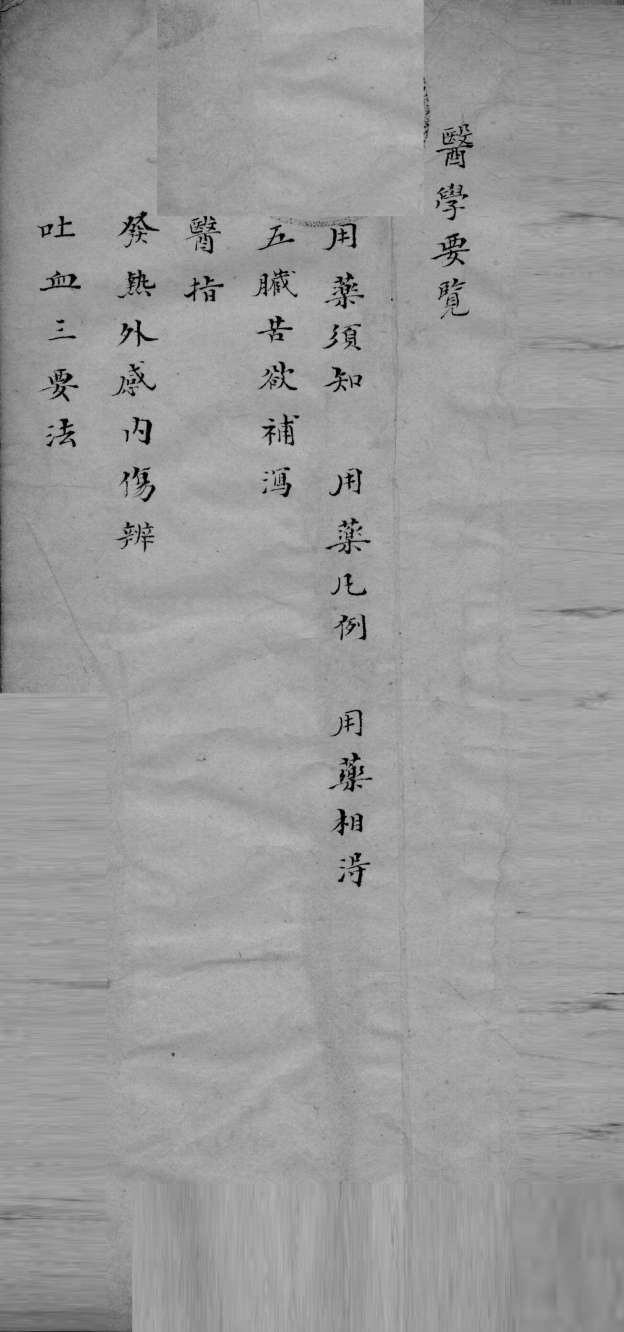 醫學要覽
用藥須知　用藥凡例　用藥相得
五臟苦欲補瀉
醫指
發熱外感內傷辨
吐血三要法